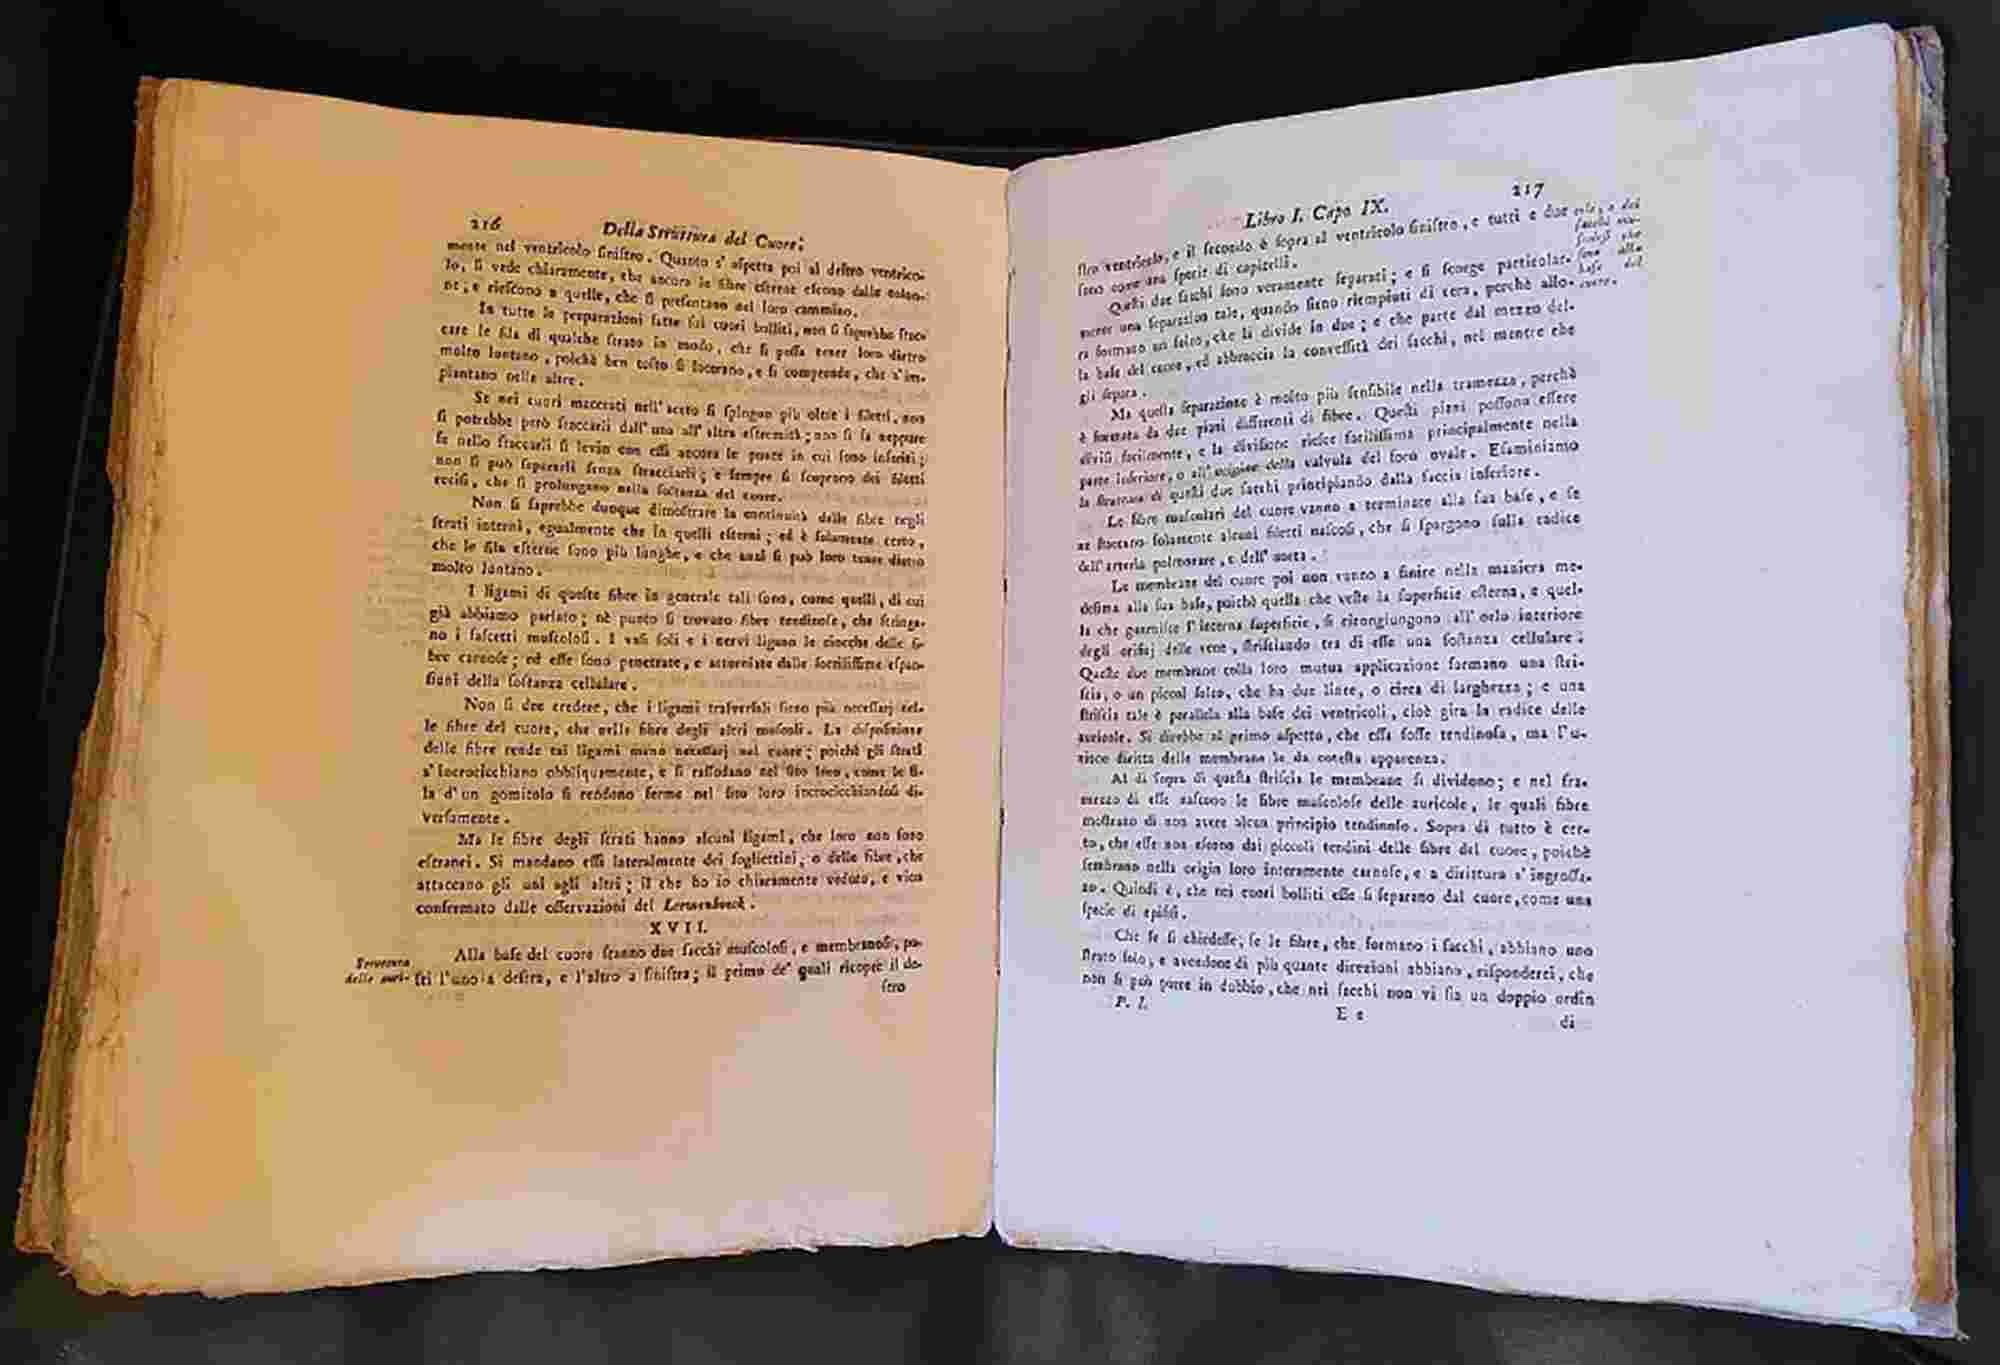 216
Della Struttura del Cuore;
mente nel ventricolo siniſtro. Quanto s' aſpetta poi al deſtro ventrico-
lo, ſi vede chiaramente, che ancora le fibre eſterne eſcono dalle colon-
ne, e rieſcono a quelle, che ſi preſentano nel loro cammino.
In tutte le preparazioni fatte ſui cuori bolliti, non ſi ſaprebbe ſtac-
care le fila di qualche ſtrato in modo, che ſi poſſa tener loro dietro
molto lontano, poichè ben toſto ſi lacerano, e ſi comprende, che s'im-
piantano nelle altre.
Se nei cuori macerati nell'aceto ſi ſpingon più oltre i filetti, non
ſi potrebbe però ſtaccarli dall'una all'altra eſtremità; non ſi ſa neppure
ſe nello ſtaccarli ſi levin con eſſi ancora le parti in cui ſono inſeriti;
non ſi può ſepararli ſenza ſtracciarli; e ſempre ſi ſcuoprono dei filetti
recisi, che ſi prolungano nella ſoſtanza del cuore.
Non ſi ſaprebbe dunque dimoſtrare la continuità delle fibre negli
ſtrati interni, egualmente che in quelli eſterni; ed è ſolamente certo,
che le fila eſterne ſono più lunghe, e che anzi ſi può loro tener dietro
molto lontano.
I ligami di queſte fibre in generale tali ſono, come quelli, di cui
già abbiamo parlato; nè punto ſi trovano fibre tendinoſe, che ſtringa-
no i faſcetti muſcoloſi. I vaſi ſoli e i nervi ligano le ciocche delle fi-
bre carnoſe; ed eſſe ſono penetrate, e attorniate dalle ſottiliſſime eſpan-
ſioni della ſoſtanza cellulare.
Non ſi dee credere, che i ligami traſverſali ſieno più neceſſarj nel-
le fibre del cuore, che nelle fibre degli altri muſcoli. La diſpoſizione
delle fibre rende tai ligami meno neceſſarj nel cuore; poichè gli ſtrati
s'incrocicchiano obbliquamente, e ſi raſſodano nel ſito loro, come le fi-
la d'un gomitolo ſi rendono ferme nel ſito loro incrocicchiandoſi di-
verſamente.
Ma le fibre degli ſtrati hanno alcuni ligami, che loro non ſono
eſtranei. Si mandano eſſi lateralmente dei fogliettini, o delle fibre, che
attaccano gli uni agli altri; il che ho io chiaramente veduto, e vien
confermato dalle oſſervazioni del Lerwenhoeck.
XVII.
Struttura
delle auri-
Alla baſe del cuore ſtanno due ſacchi muſcoloſi, e membranoſi, po-
ſti l'uno a deſtra, e l'altro a ſiniſtra; il primo de' quali ricopre il de-
ſtro
217
Libro I. Capo IX.
ſtro ventricolo, e il ſecondo è ſopra al ventricolo ſiniſtro, e tutti e due
ſono come una ſpecie di capitelli.
cole, e dei
ſacchi
che
ſono alla
baſe del
cuore.
Queſti due ſacchi ſono veramente ſeparati; e ſi ſcorge particolar-
mente una ſeparazion tale, quando ſieno riempiuti di cera, perchè allo-
ra formano un ſolco, che li divide in due; e che parte dal mezzo del-
la baſe del cuore, ed abbraccia la conveſſità dei ſacchi, nel mentre che
gli ſepara.
Ma queſta ſeparazione è molto più ſenſibile nella tramezza, perchè
è formata da due piani differenti di fibre. Queſti piani poſſono eſſere
diviſi facilmente, e la diviſione rieſce faciliſſima principalmente nella
parte inferiore, o all'origine della valvula del foro ovale. Eſaminiamo
la ſtruttura di queſti due ſacchi principiando dalla faccia inferiore.
Le fibre muſculari del cuore vanno a terminare alla ſua baſe, e ſe
ne ſtaccano ſolamente alcuni filetti naſcoſi, che ſi ſpargono ſulla radice
dell'arteria polmonare, e dell' aorta.
Le membrane del cuore poi non vanno a finire nella maniera me-
deſima alla ſua baſe, poichè quella che veſte la ſuperficie eſterna, e quel-
la che guarniſce l'interna ſuperficie, ſi ricongiungono all' orlo inferiore
degli orifizj delle vene, ſtriſciando tra di eſſe una ſoſtanza cellulare.
Queſte due membrane colla loro mutua applicazione formano una ſtri-
ſcia, o un piccol ſolco, che ha due linee, o circa di larghezza; e una
ſtriſcia tale è parallela alla baſe dei ventricoli, cioè gira la radice delle
auricole. Si direbbe al primo aſpetto, che eſſa foſſe tendinoſa, ma l'u-
nion diritta delle membrane le dà coteſta apparenza.
Al di ſopra di queſta ſtriſcia le membrane ſi dividono; e nel fra-
mezzo di eſſe naſcono le fibre muſcoloſe delle auricole, le quali fibre
moſtrano di non avere alcun principio tendinoſo. Sopra di tutto è cer-
to, che eſſe non eſcono dai piccoli tendini delle fibre del cuore, poichè
ſembrano nella origin loro interamente carnoſe, e a dirittura s'ingroſſa-
no. Quindi è, che nei cuori bolliti eſſe ſi ſeparano dal cuore, come una
ſpecie di epifiſi.
Che ſe ſi chiedeſſe, ſe le fibre, che formano i ſacchi, abbiano uno
ſtrato ſolo, e avendone di più quante direzioni abbiano, riſponderei, che
non ſi può porre in dubbio, che nei ſacchi non vi ſia un doppio ordin
P. I.
E e
di